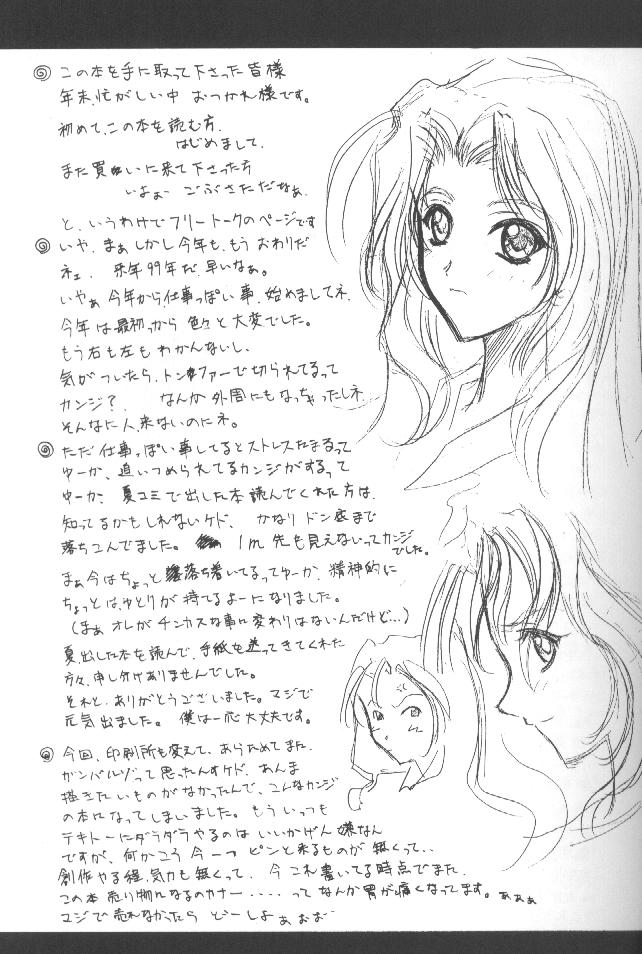 この本を手に取って下さった皆様
年末、忙がしい中 おつかれ様です。
初めて、この本を読む方、
はじめまして、
また買いに来て下さった方
いよぉ ごぶさただなぁ、
と、いうわけでフリートークのページです
いや、まぁしかし今年も、もう おわりだ
ネェ、 来年99年だ、早いなぁ。
いやぁ 今年から仕事っぽい事、始めましてネ、
今年は最初っから 色々と大変でした。
もう右も左もわかんないし、
気がついたら、トンファーで切られてるって
カンジ? なんか 外周にもなっちゃったしネ、
そんなに人、来ないのにネ。
ただ仕事っぽい事してるとストレスたまるって
ゆーか、追いつめられてるカンジがするって
ゆーか、 夏コミで出した本 読んでくれた方は、
知ってるかもしれないケド、 かなり ドン底まで
落ちコんでました。 1m先も見えないってカンジ
でした。
まぁ今はちょっと 落ち着いてるってゆーか、精神的に
ちょっとは、ゆとりが 持てるよーになりました。
(まぁ オレがチンカスな事に変わりはないんだけど…)
夏、出した本を読んで、手紙を送ってきてくれた
方々、申し分けありませんでした。
それと、ありがとうございました。マジで
元気出ました。 僕は一応大丈夫です。
今回、印刷所も変えて、あらためてまた、
ガンバルゾって思ったんすケド、あんま
描きたいものがなかったんで、こんなカンジ
の本になってしまいました。もう いっつも
テキトーにダラダラやるのは いいかげん 嫌なん
ですが、何かこう 今一つ ピンと来るものが 無くって、、
創作やる程、気力も無くって、 今 これ書いてる時点でまた、
この本 売り物になるのカナー ‥‥ って なんか胃が痛くなってます。ぁぁぁ
マジで売れなかったら どーしよ ぁ ぉぉ